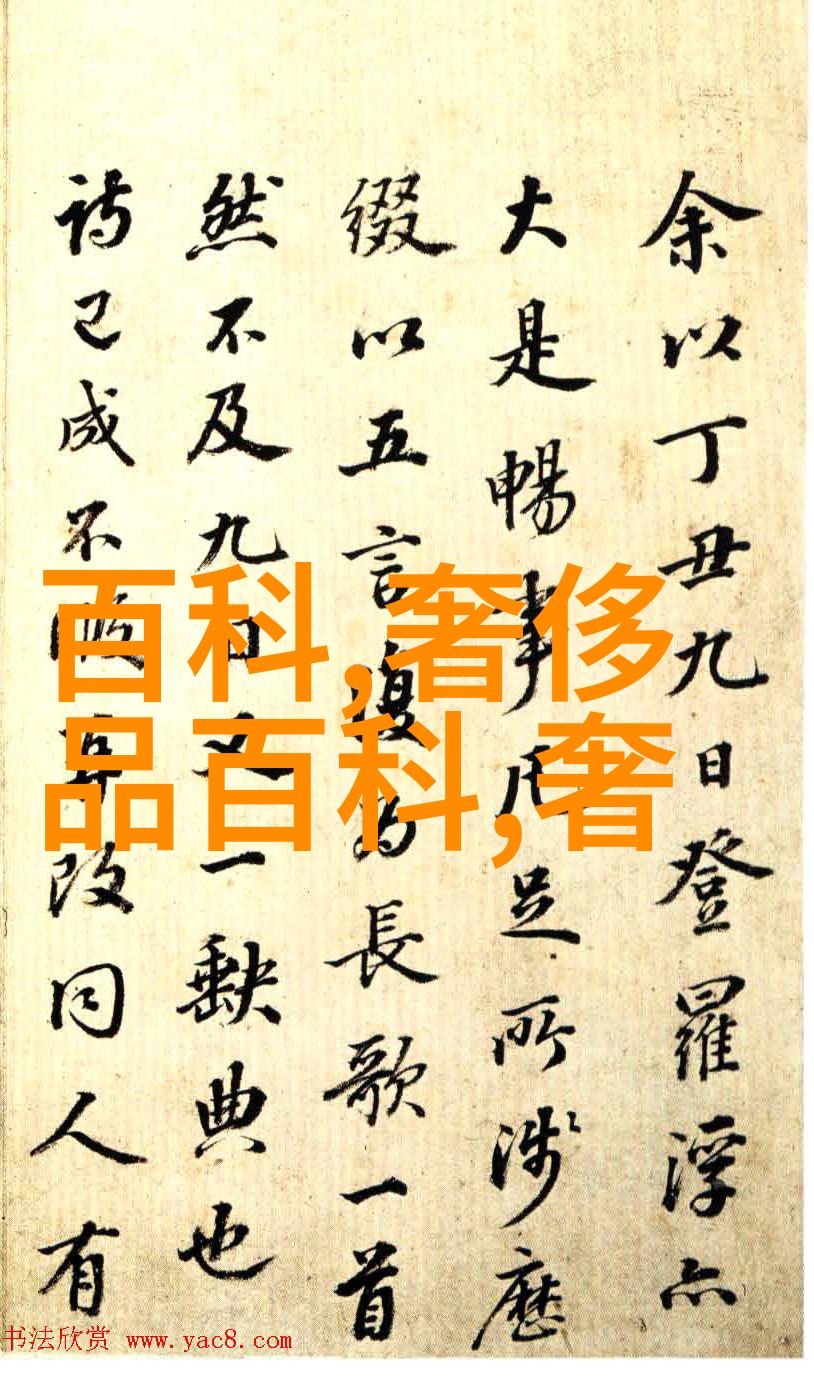 余以丁丑九日登羅浮亦
大是暢事凡足所涉歷
綴以五言復為長歌一首
然不及九日又一缺典也
詩已成不暇再改同人有
百科,奢侈
品百科,奢
书法欣赏 www.yac8.com